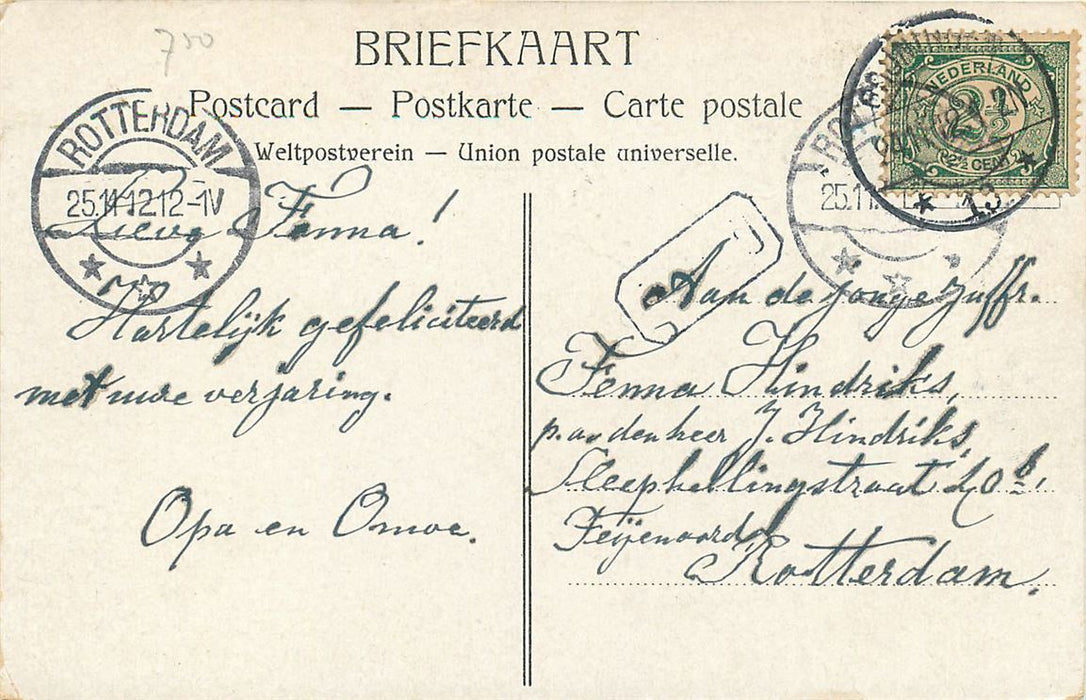 750
BRIEFKAART
Postcard — Postkarte — Carte postale
Weltpostverein — Union postale universelle.
ROTTERDAM
25.11.12.12-1V
NEDERLAND
2½
2½ CENT 2½
RO
25.11
Lieve Fenna!
Hartelijk gefeliciteerd
met uwe verjaring.
Opa en Omoe.
Aan de jonge Juffr.
Fenna Hindriks,
p.a. den heer J. Hindriks,
Sleephellingstraat 20 b.
Feijenoord
Rotterdam.